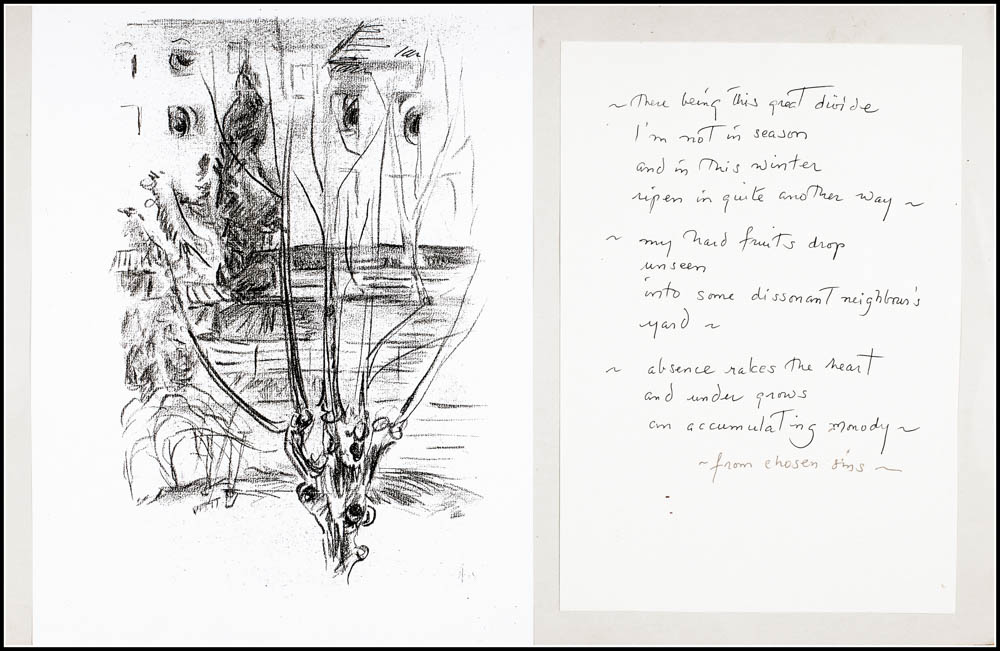 ~ There being this great divide
I'm not in season
and in this winter
ripen in quite another way ~
~ my hard fruits drop
unseen
into some dissonant neighbour's
yard ~
~ absence rakes the heart
and under grows
an accumulating monody ~
~ from chosen sins ~